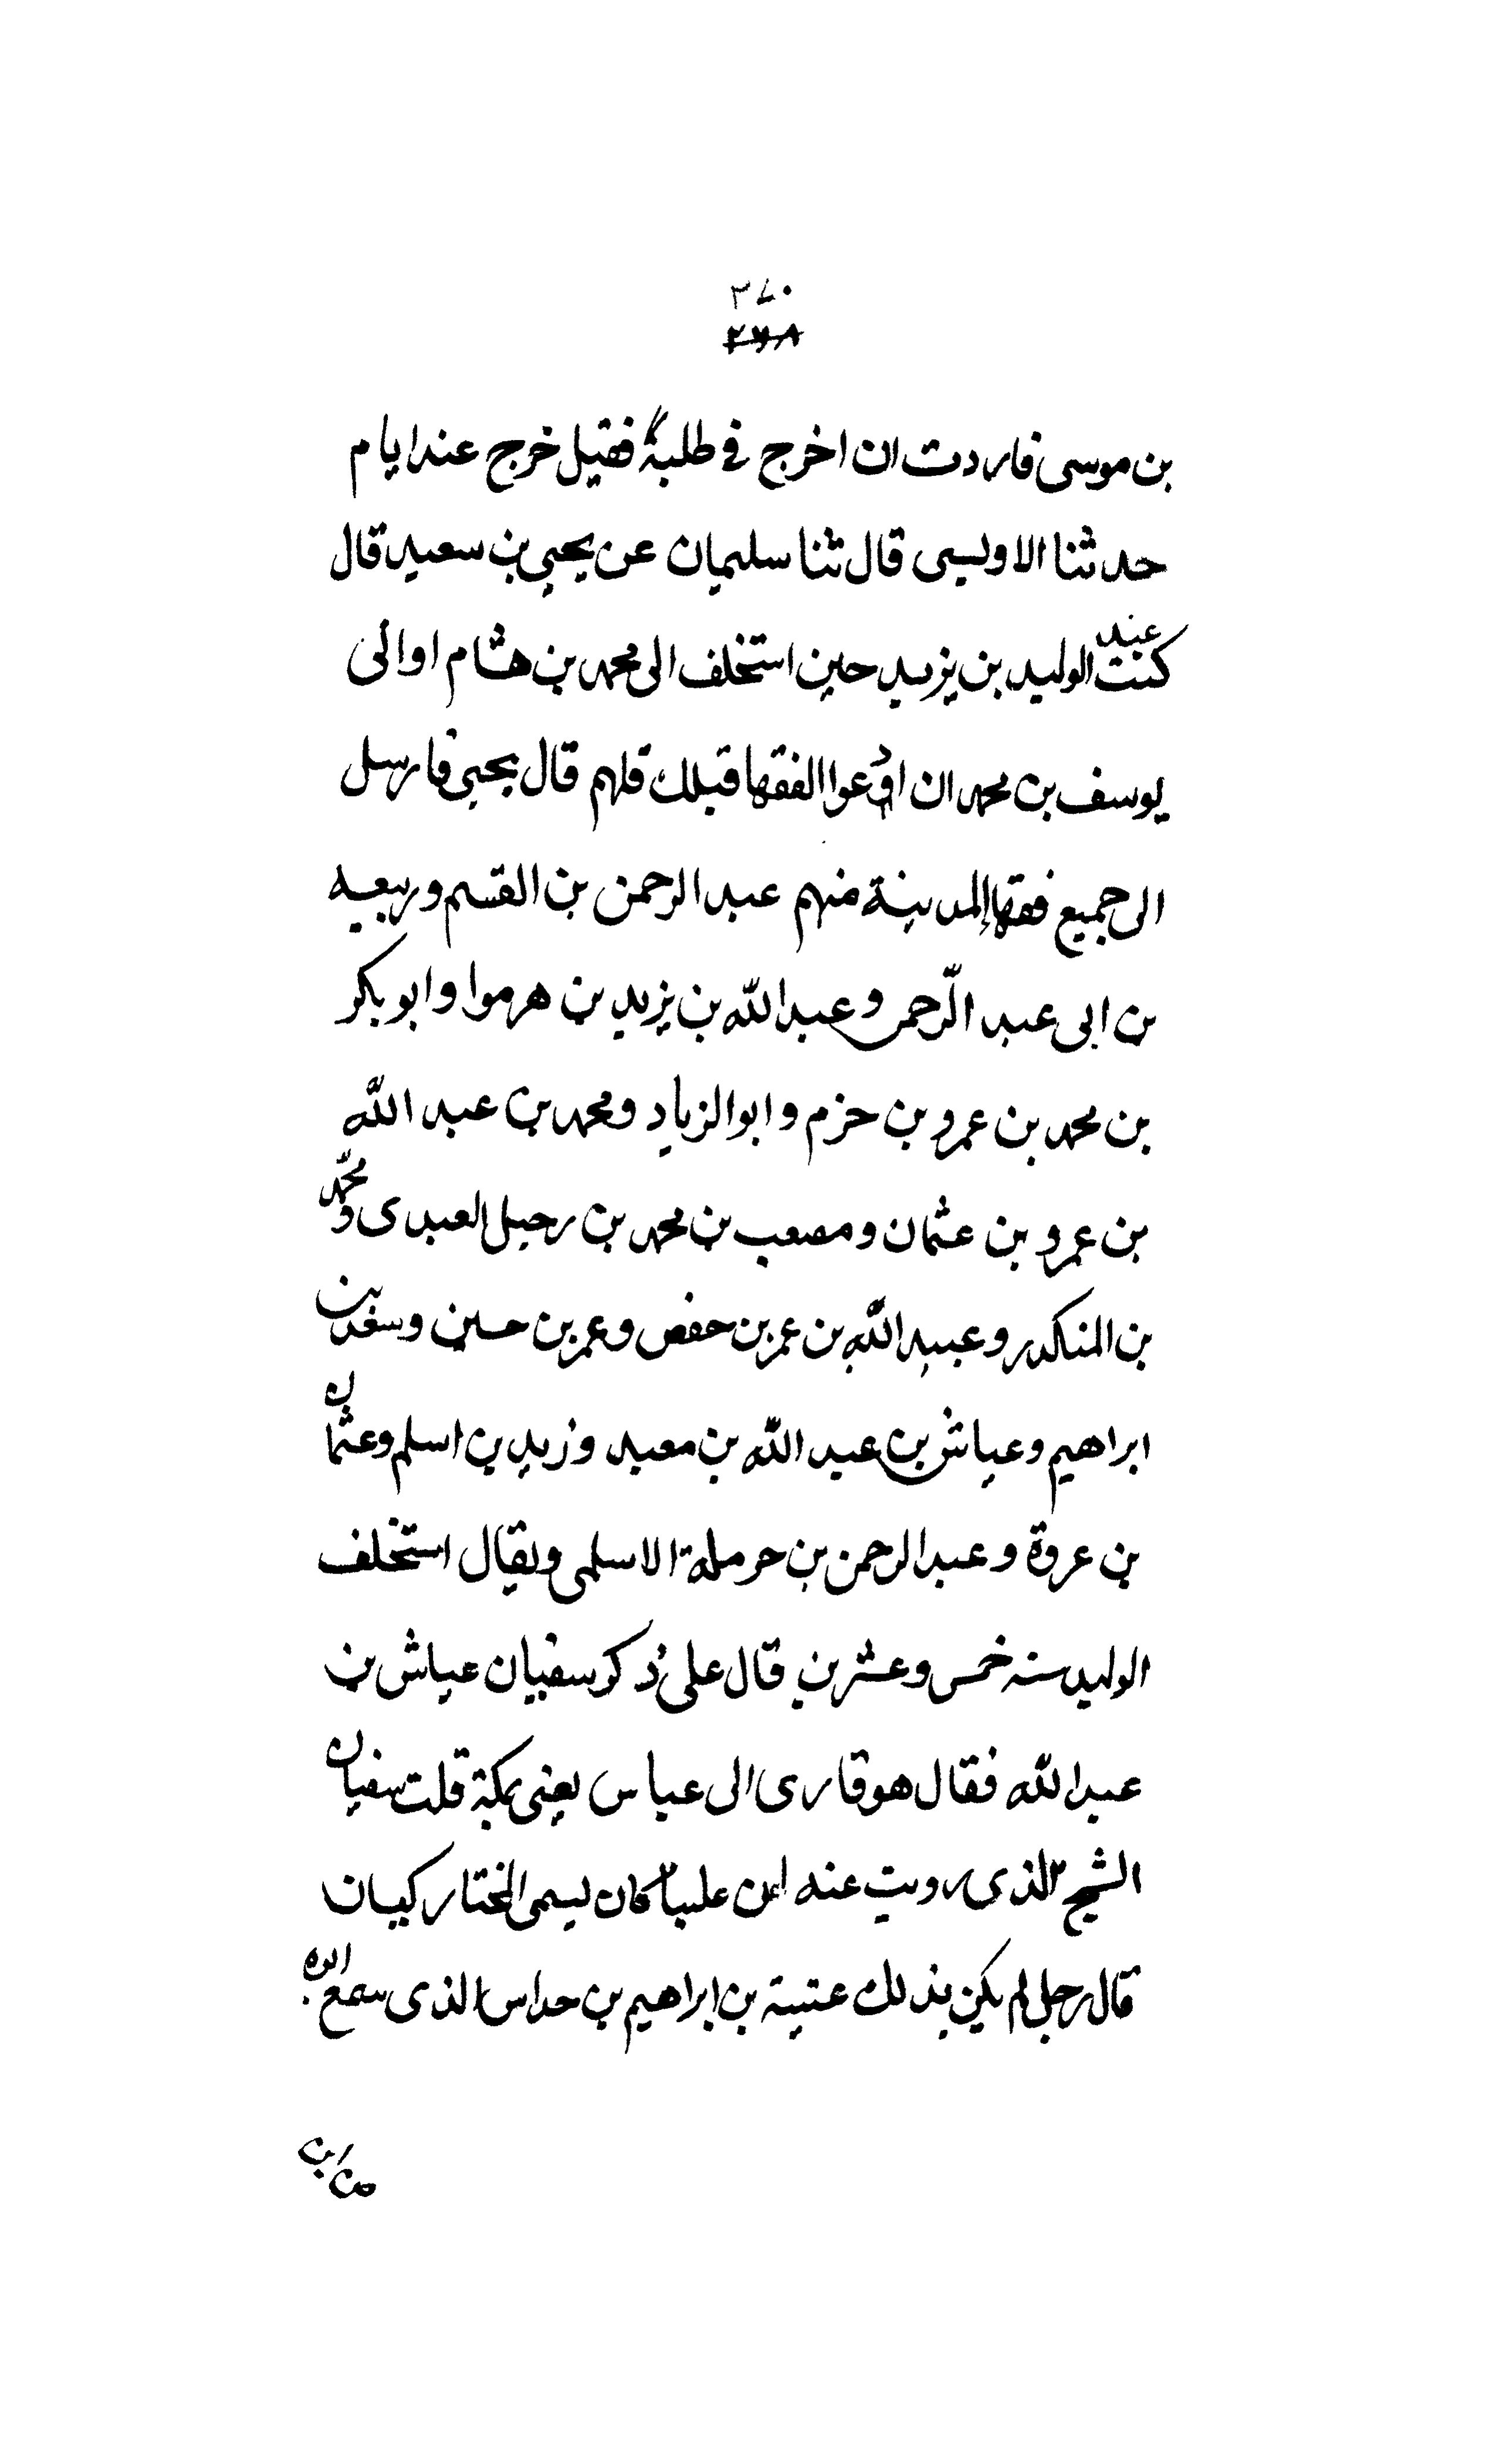 ٢٧٠
٢٧٨
بن موسى فاردت ان اخرج في طلبه فقيل خرج عند ايام
حدثنا الاويسى قال ثنا سليمان عن يحيى بن سعيد قال
كنت عند الوليد بن يزيد حين استخلف الى محمد بن هشام او الى
يوسف بن محمد ان ادعوا الفقها قبلك قلهم قال يحيى فارسل
الى جميع فقها المدينة منهم عبد الرحمن بن القسم وربيعه
بن ابى عبد الرحمن وعبد الله بن يزيد بن هرموا وابو بكر
بن محمد بن عمرو بن حزم وابو الزياد ومحمد بن عبد الله
بن عمرو بن عثمان ومصعب بن محمد بن رحيل العبدى ومحمد
بن المنكدر وعبيد الله بن عمر بن حفص وعمر بن حسين وسعد بن
ابراهيم وعياش بن عبد الله بن معبد وزيد بن اسلم وعثمان
بن عروة وعبد الرحمن بن حرملة الاسلمى ويقال استخلف
الوليد سنه خمس وعشرين قال على ذكر سفيان عياش بن
عبد الله فقال هو قارى الى عياس يعنى بمكة قلت سفيان
الشيخ الذى رويت عنه ان عليا كان يسمى المختار كيسان
قال رجل لم يكن بذلك عتيبة بن ابراهيم بن حداس الذى سمع